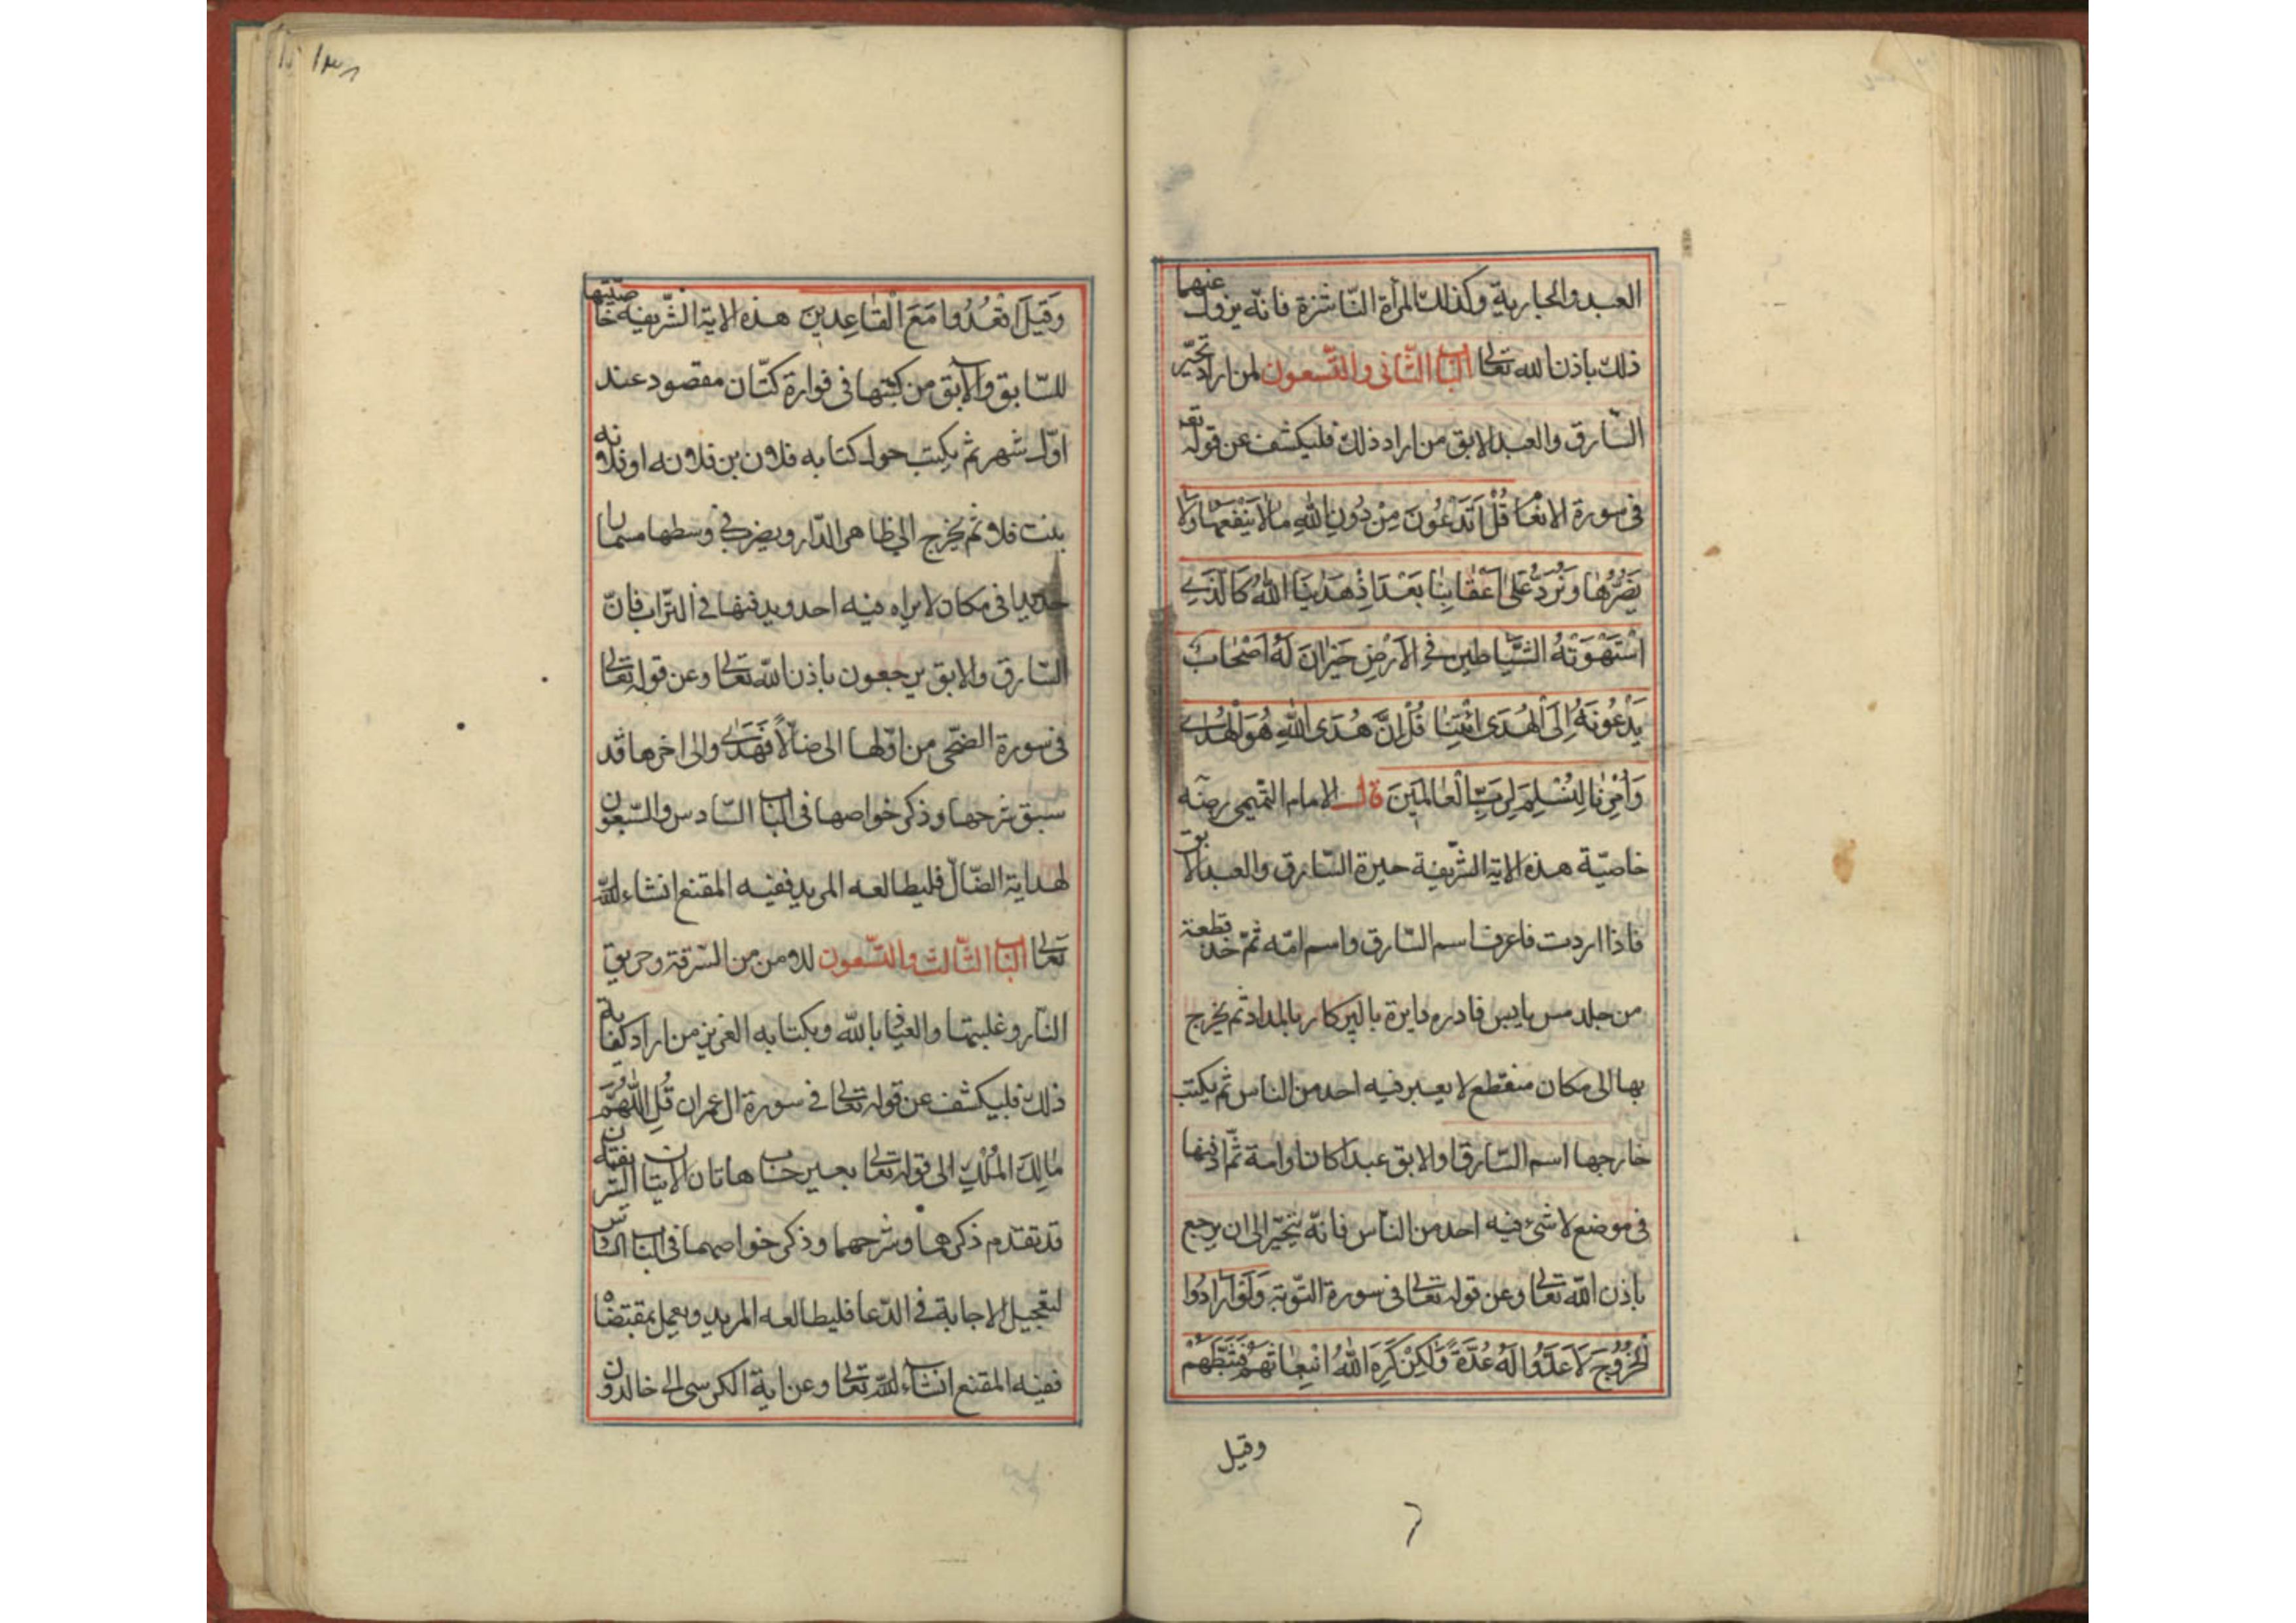 العبد والجارية وكذلك المرأة النّاشزة فانّه يزول عنهما
ذلك باذن الله تعالى الباب الثّانى والتّسعون لمن اراد تحيّر
السّارق والعبد الابق من اراد ذلك فليكشف عن قوله تعه
فى سورة الانعام قُلْ اَتَدْعُونَ مِنْ دُونِ اللهِ مالا يَنْفَعُها وَلا
يَضُرُّها وَنُرَدُّ عَلىٰ اَعْقابِنا بَعْدَ اِذْ هَدٰينَا اللهُ كَالَّذى
اسْتَهْوَتْهُ الشَّياطين فِى الْاَرْضِ حَيْرانَ لَهُ اَصْحابٌ
يَدْعُونَهُ اِلَى الْهُدَى ائْتِنا قُلْ اِنَّ هُدَى اللهِ هُوَ الْهُدٰى
وَاُمِرْنا لِنُسْلِمَ لِرَبِّ الْعالَمينَ قال الامام التميمى رضه
خاصيّة هذه الاية الشّريفة حيرة السّارق والعبد الابق
فاذا اردت فاعرف اسم السّارق واسم امّه ثمّ خذ قطعة
من جلد مس يابس فادره دايرة بالپركار بالمداد ثم يخرج
بها الى مكان منقطع لا يعبر فيه احد من الناس ثم يكتب
خارجها اسم السّارق او الابق عبدا كان او امة ثمّ ادفنها
فى موضع لا شىء فيه احد من النّاس فانّه يتحيّر الى ان يرجع
باذن الله تعالى وعن قوله تعالى فى سورة التّوبة وَلَوْ اَرادُوا
الْخُرُوجَ لَاَعَدُّوا لَهُ عُدَّةً وَلٰكِنْ كَرِهَ اللهُ انْبِعاثَهُمْ فَثَبَّطَهُمْ
وقيل
١٣٨
وَقيلَ اقْعُدُوا مَعَ الْقاعِدينَ هذه الاية الشّريفة خاصّيّتها
للسّابق والآبق من كتبها فى قوارة كتّان مقصود عند
اوّل شهر ثم يكتب حول كتابه فلان بن فلانه او فلانه
بنت فلان ثم يخرج الى ظاهر الدّار ويضرب فى وسطها مسمارا
حديدا فى مكان لا يراه فيه احد ويدفنها فى التّراب فانّ
السّارق والابق يرجعون باذن الله تعالى وعن قوله تعالى
فى سورة الضّحى من اوّلها الى ضالّاً فَهَدٰى والى اخرها قد
سبق شرحها وذكر خواصها فى الباب السّادس والسّبعون
لهداية الضّالّ فليطالعه المريد ففيه المقنع انشاء الله
تعالى الباب الثّالث والتّسعون للامن من السّرقة وحريق
النّار وغلبتها والعياذ بالله وبكتابه العزيز من اراد كفاية
ذلك فليكشف عن قوله تعالى فى سورة ال عمران قُلِ اللّٰهُمَّ
مٰالِكَ الْمُلْكِ الى قوله تعالى بغير حساب هاتان الايتان الشريفتان
قد تقدم ذكرهما وشرحهما وذكر خواصهما فى الباب السّادس
لتعجيل الاجابة فى الدّعا فليطالعه المريد ويعمل بمقتضاه
ففيه المقنع انشاء الله تعالى وعن اية الكرسى الى خالدون